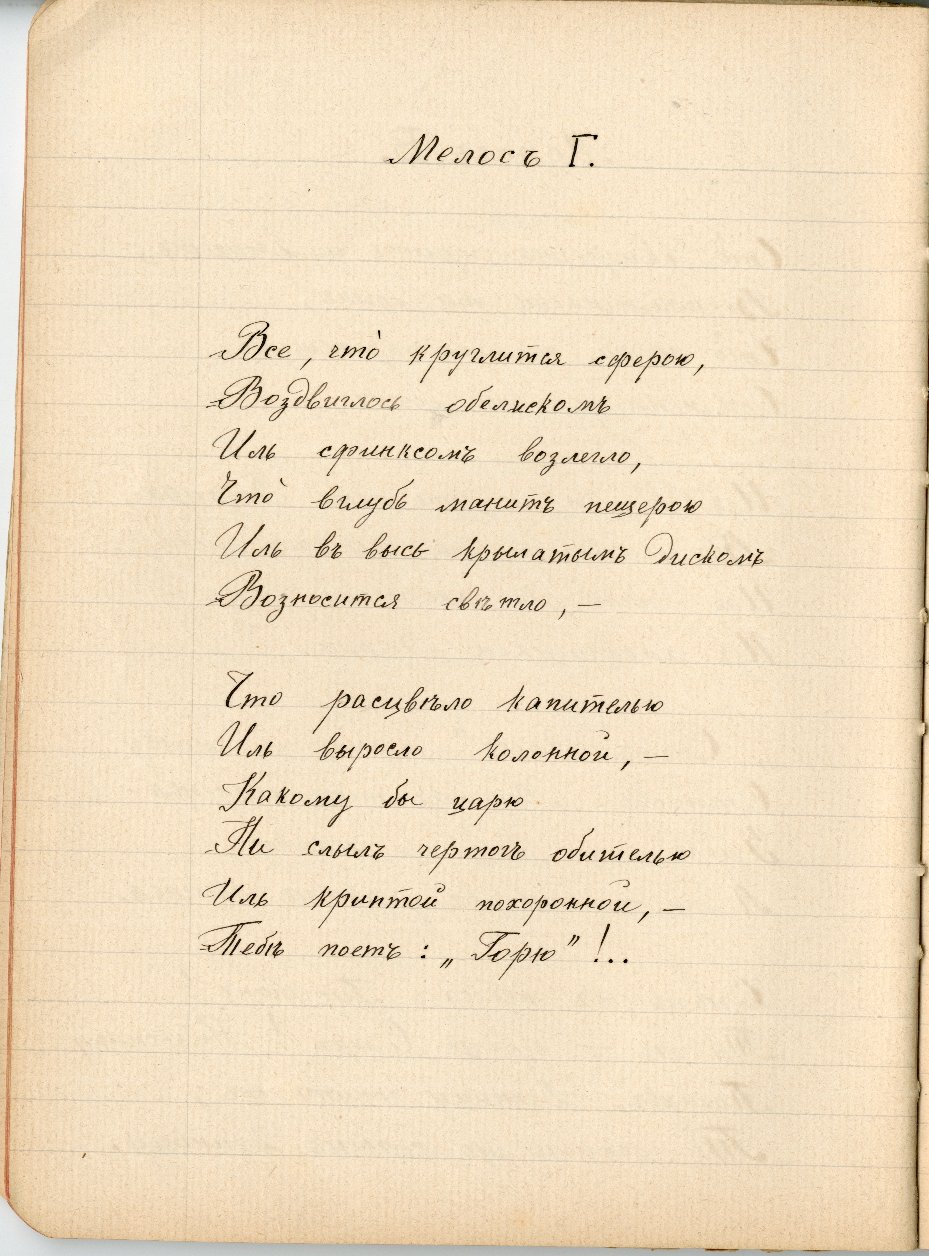 Мелосъ Г.
Все, что̀ круглится сферою,
Воздвиглось обелискомъ
Иль сфинксомъ возлегло,
Что̀ вглубь манитъ пещерою
Иль въ высь крылатымъ дискомъ
Возносится свѣтло, —
Что расцвѣло капителью
Иль выросло колонной, —
Какому бы царю
Ни слылъ чертогъ обителью
Иль криптой похоронной, —
Тебѣ поетъ: „Горю” !..